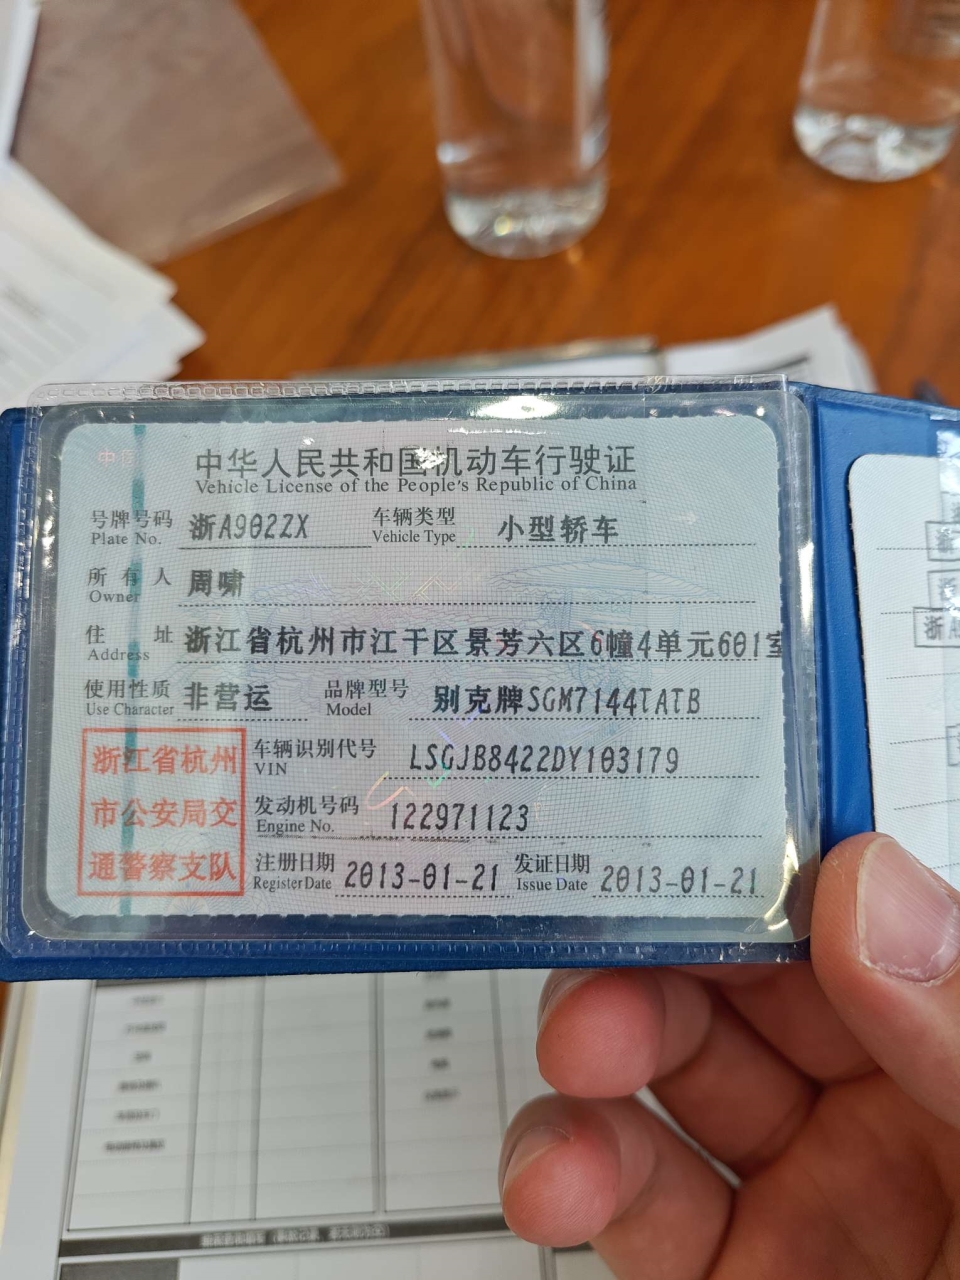 中华人民共和国机动车行驶证
Vehicle License of the People's Republic of China
号牌号码 浙A902ZX 车辆类型 小型轿车
Plate No. Vehicle Type
所有人 周啸
Owner
住址 浙江省杭州市江干区景芳六区6幢4单元601室
Address
使用性质 非营运 品牌型号 别克牌SGM7144TATB
Use Character Model
浙江省杭州
市公安局交
通警察支队
车辆识别代号 LSGJB8422DY103179
VIN
发动机号码 122971123
Engine No.
注册日期 2013-01-21 发证日期 2013-01-21
Register Date Issue Date